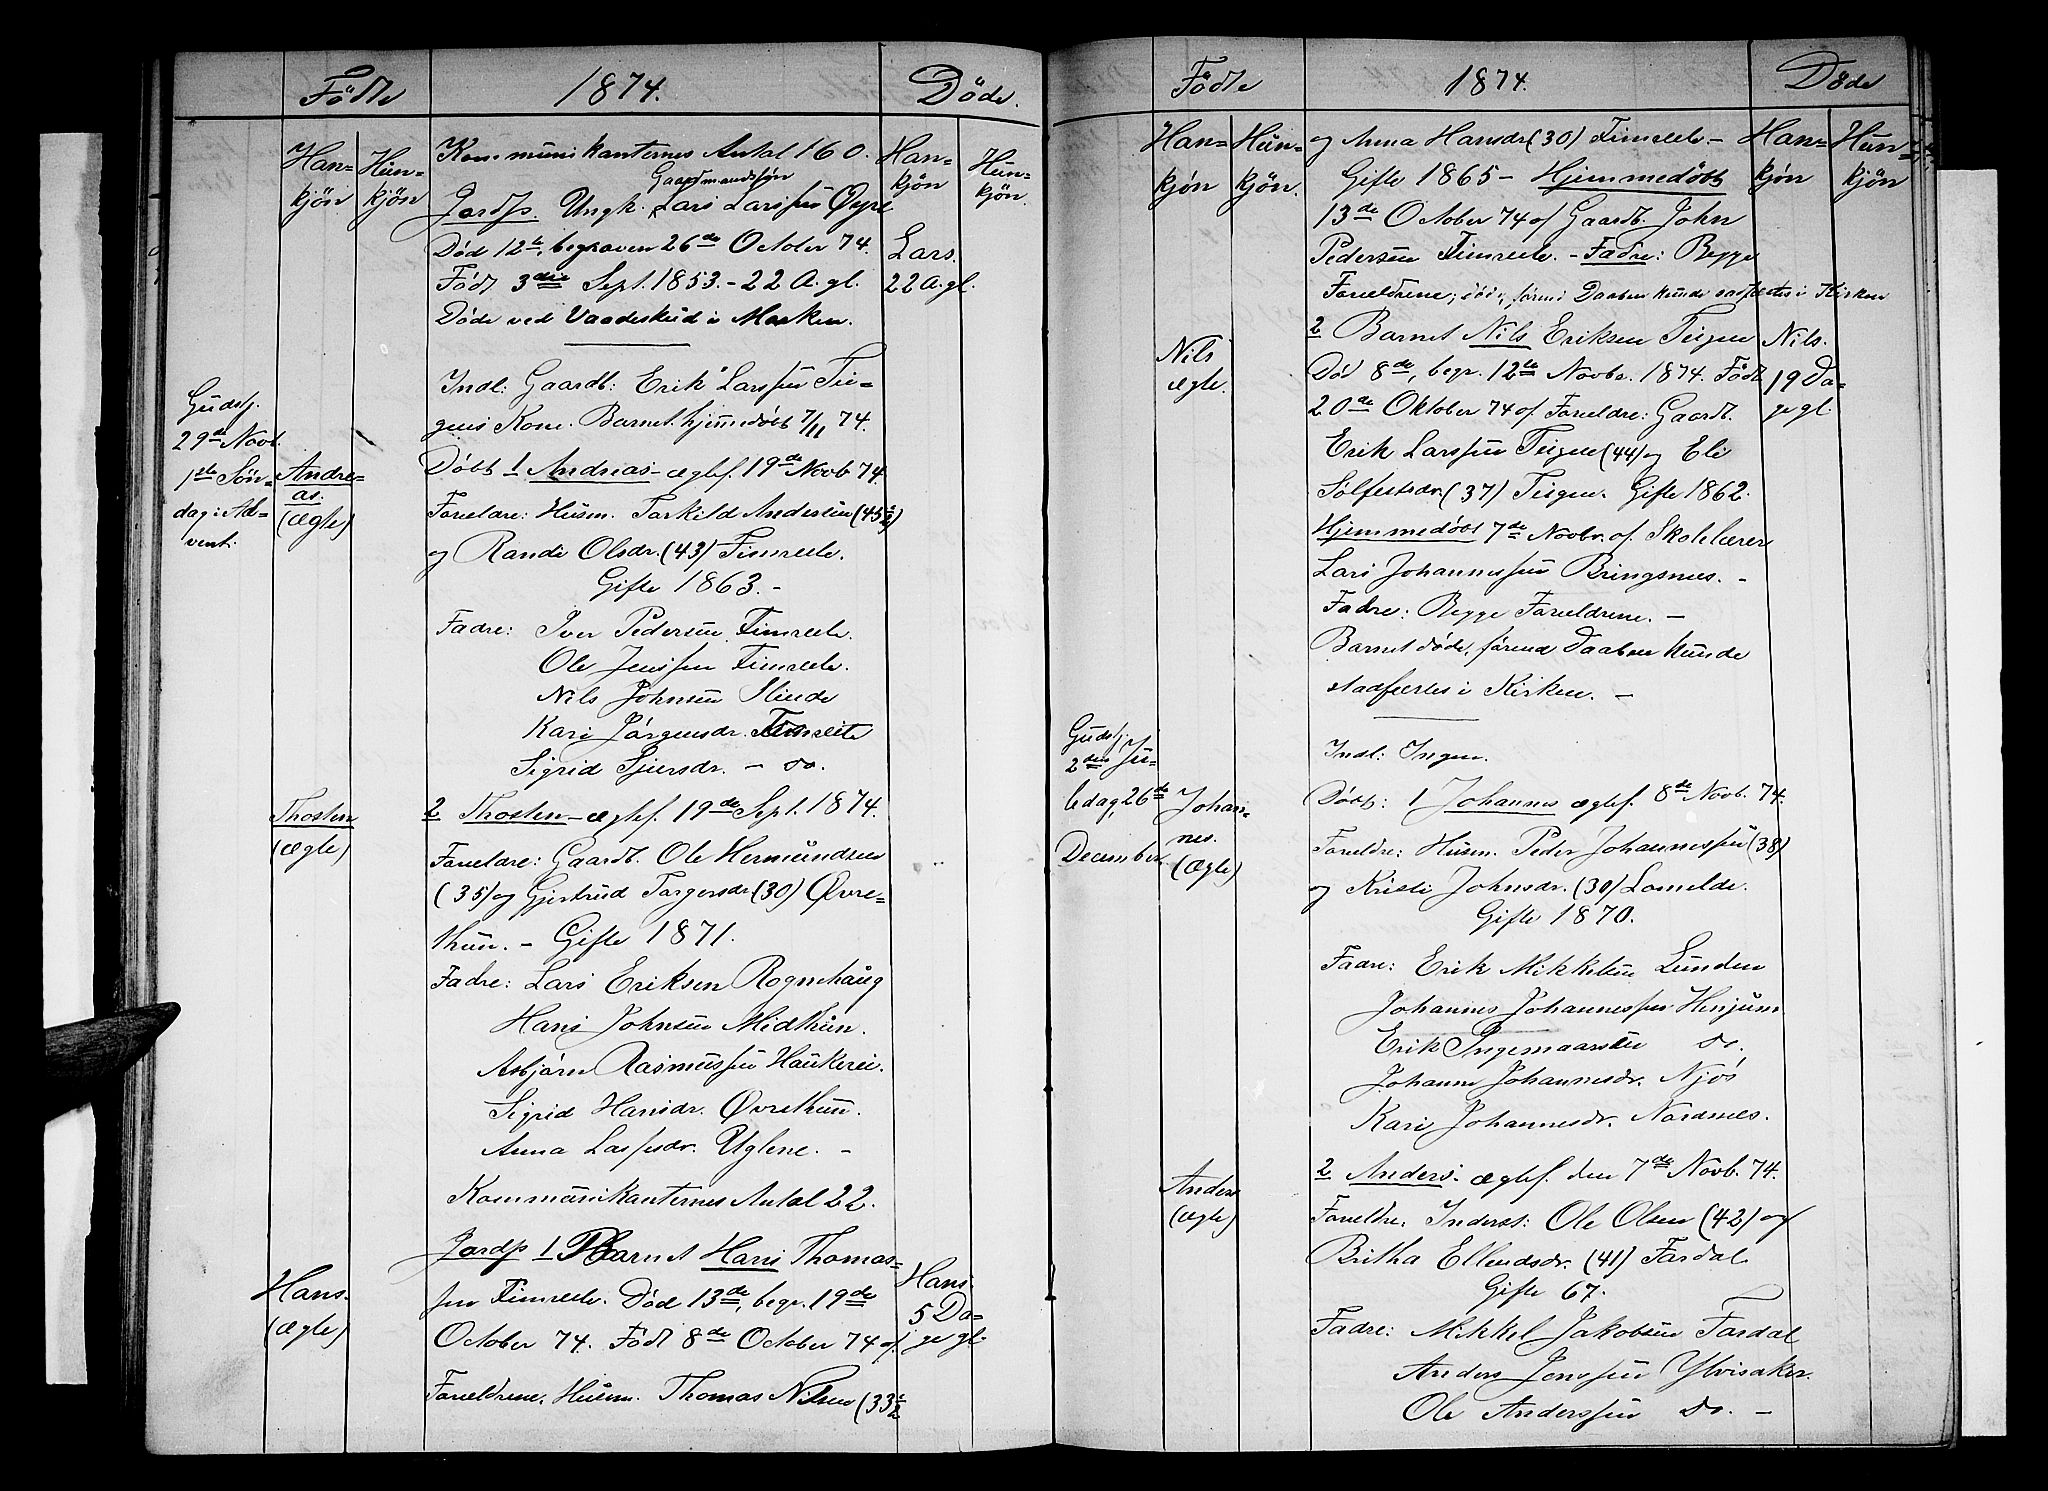 Födte
1874.
Döde.
Han-
kjön
Hun-
kjön
Han-
kjön
Hun-
kjön.
Kommunikanternes Antal 160.
Gaardmandssøn
Jordf. Ungk. Lars Larssen Øyre
Død 12te, begraven 26de October 74.
Født 3die Sept. 1853. - 22 A. gl.
Døde ved Vaadeskud i Marken.
Lars.
22 A. gl.
Gudstj.
29de Novb.
1ste Søn-
dag i Ad-
vent.
Indl: Gaardb: Erik Larssen Tei-
gens Kone. Barnet hjemmedøbt 7/11 74.
Andre-
as.
(Ægte)
Døbt 1 Andreas - ægtef. 19de Novb 74.
Forældre: Husm. Torkild Andersen (45½)
og Randi Olsdr. (43) Fimreite.
Gifte 1863. -
Fadre: Iver Pedersen Fimreite.
Ole Jenssen Fimreite.
Nils Johnsen Slinde
Kari Jørgensdr. Fimreite
Sigrid Sjursdr. - do.
Thosten
(ægte)
2 Thosten - ægtef. 19de Sept. 1874.
Forældre: Gaardb. Ole Hermundsen
(35) og Gjertrud Torgersdr. (30) Øvre-
thun. - Gifte 1871.
Fadre: Lars Eriksen Rognehaug
Hans Johnsen Midthun.
Asbjörn Rasmussen Haukerei.
Sigrid Hansdr. Øvrethun.
Anna Lassesdr. Uglene. -
Kommunikanternes Antal 22.
Hans.
(ægte)
Jordf 1 Barnet Hans Thomas-
sen Fimreite. Død 13de, begr. 19de
October 74. Født 8de October 74 af
Forældrene, Husm. Thomas Nilsen (33½
Hans
5 Da-
ge gl.
Födte
1874.
Döde
Han-
kjön
Hun-
kjön.
Han-
kjön
Hun-
kjön
og Anna Hansdr (30) Fimreite -
Gifte 1865 - Hjemmedøbt
13de October 74 af Gaardb. John
Pedersen Fimreite. - Fadre: Begge
Forældrene; døde, førend Daaben kunde stadfæstes i Kirken
Nils
ægte.
2 Barnet Nils Eriksen Teigen
Død 8de, begr. 12te Novbr. 1874. Født
20de Oktober 74 af Forældre: Gaardb.
Erik Larssen Teigen (44) og Eli
Sølfestsdr. (37) Teigen. Gifte 1862.
Hjemmedøbt 7de Novbr. af Skolelærer
Lars Johannessen Bringsnes. -
Fadre: Begge Forældrene. -
Barnet døde, førend Daaben kunde
stadfæstes i Kirken. -
Nils.
19 Da-
ge gl.
Gudstj.
2den Ju-
ledag, 26de
December.
Indl: Ingen.
Johan-
nes.
(Ægte)
Døbt: 1 Johannes ægtef. 8de Novb. 74.
Forældre: Husm. Peder Johannessen (38)
og Kristi Johnsdr. (30) Lomelde.
Gifte 1870.
Fadre: Erik Mikkelsen Lunden
Johannes Johannessen Hinjum
Erik Ingemaarsen do.
Johanne Johannesdr. Njøs
Kari Johannesdr. Nordnes.
Anders
(ægte)
2 Anders. ægtef. den 7de Novb. 74.
Forældre. Inderst: Ole Olsen (42) og
Britha Ellendsdr. (41) Fardal
Gifte 67.
Fadre: Mikkel Jakobsen Fardal
Anders Jonssen Ylvisaker.
Ole Anderssen do. -